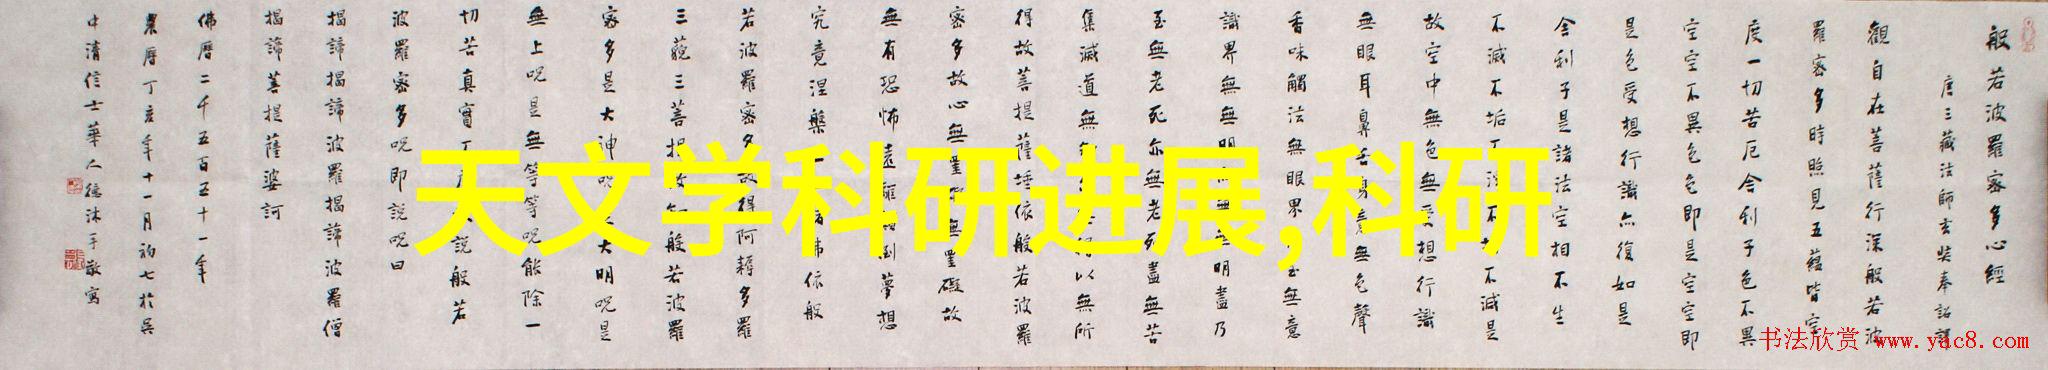 般若波羅密多心經
唐三藏法師玄奘奉詔譯
觀自在菩薩行深般若波
羅密多時照見五蘊皆空
度一切苦厄舍利子色不異
空空不異色色即是空空即
是色受想行識亦復如是
舍利子是諸法空相不生
不滅不垢不淨不增不減是
故空中無色無受想行識
無眼耳鼻舌身意無色聲
香味觸法無眼界乃至無意
識界無無明亦無無明盡乃
至無老死亦無老死盡無苦
集滅道無智亦無得以無所
得故菩提薩埵依般若波羅
密多故心無罣礙無罣礙故
無有恐怖遠離顛倒夢想
究竟涅槃三世諸佛依般
若波羅密多故得阿耨多羅
三藐三菩提故知般若波羅
密多是大神呪是大明呪是
無上呪是無等等呪能除一
切苦真實不虛故說般若
波羅密多呪即說呪曰
揭諦揭諦波羅揭諦波羅僧
揭諦菩提薩婆訶
佛曆二千五百五十一年
農曆丁亥年十一月初七於吳
中清信士華人德沐手敬寫
天文学科研进展,科研
书法欣赏 www.yac8.com